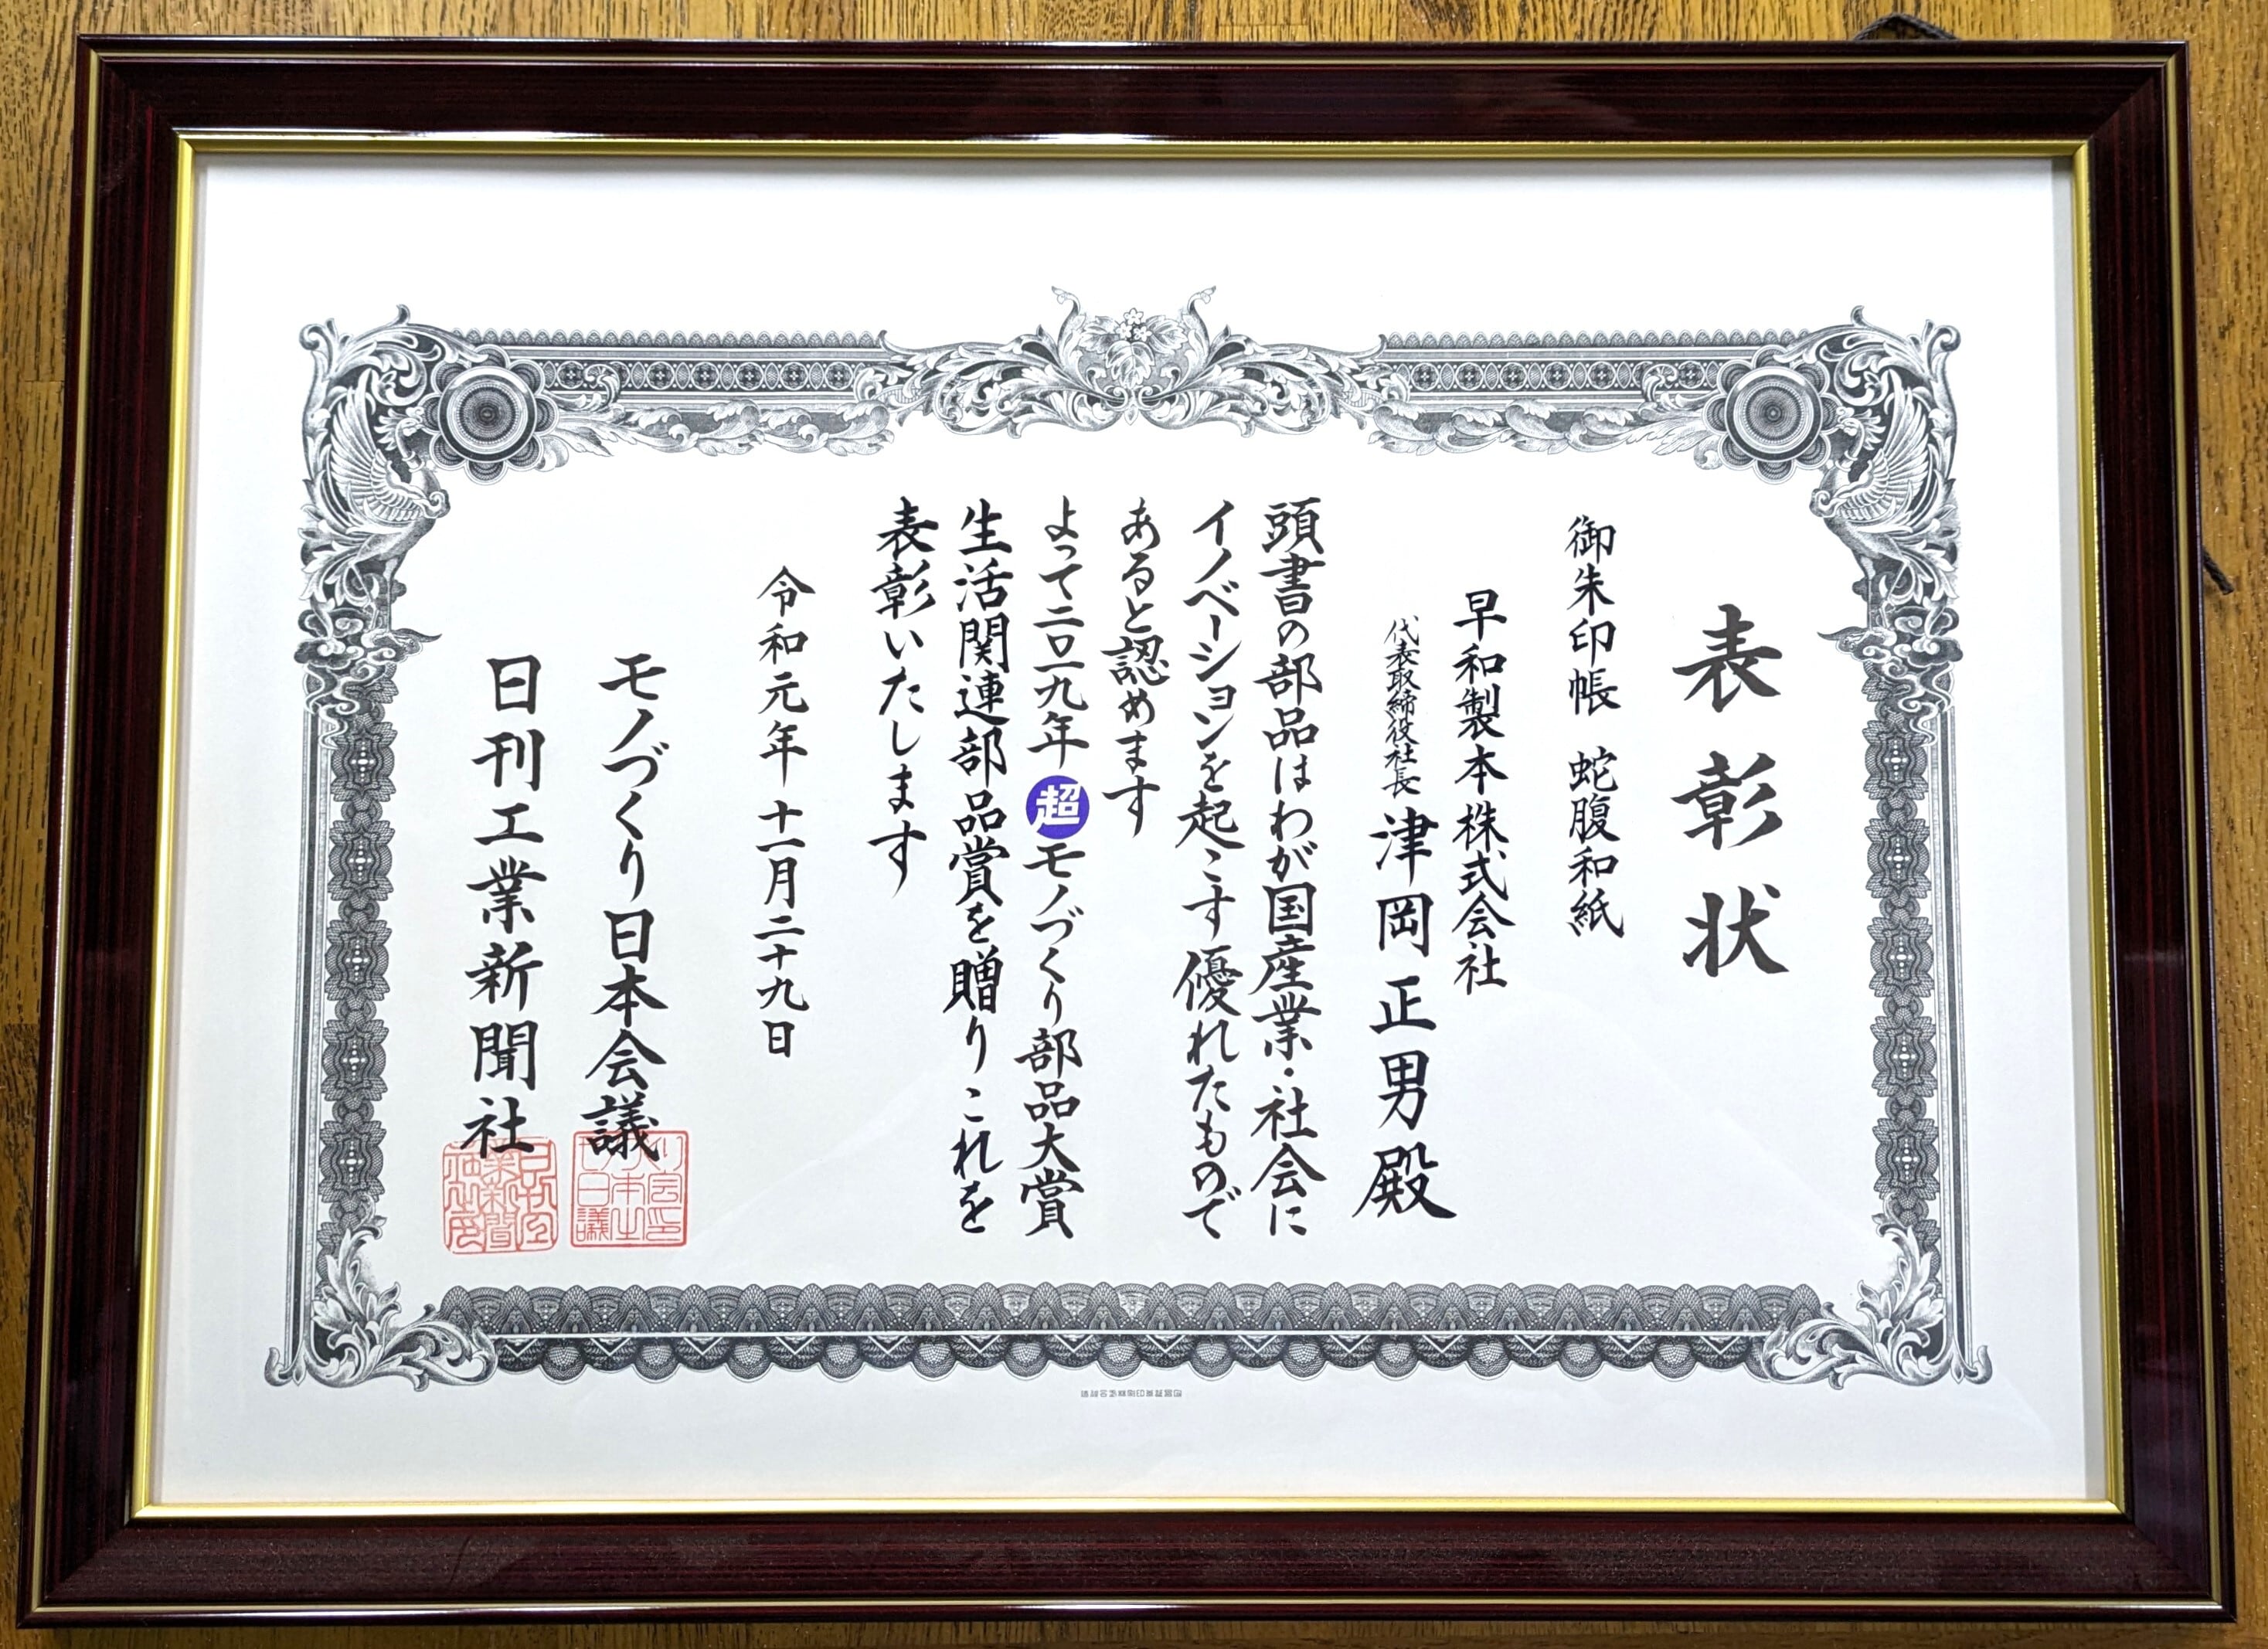 表彰状
御朱印帳 蛇腹和紙
早和製本株式会社
代表取締役社長 津岡正男殿
頭書の部品はわが国産業・社会に
イノベーションを起こす優れたもので
あると認めます
よって二〇一九年超モノづくり部品大賞
生活関連部品賞を贈りこれを
表彰いたします
令和元年十一月二十九日
モノづくり日本会議
日刊工業新聞社